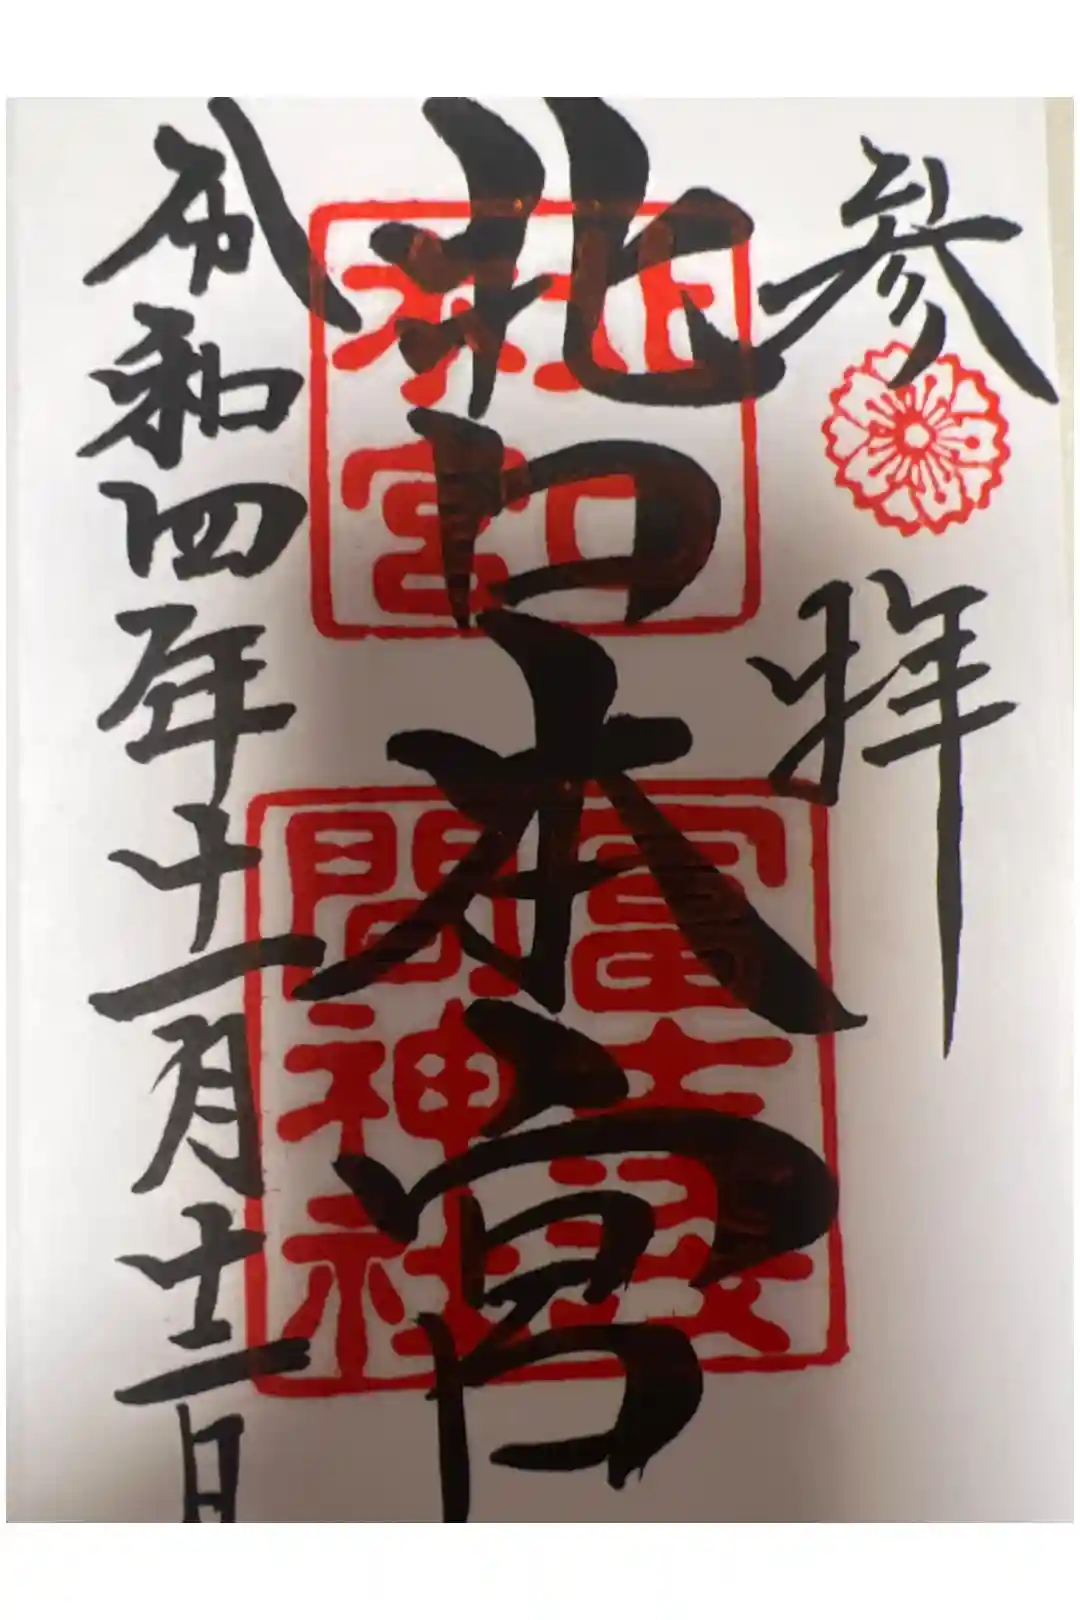 参拝
北口本宮
令和四年十一月十二日
北口
本宮
冨士浅
間神社